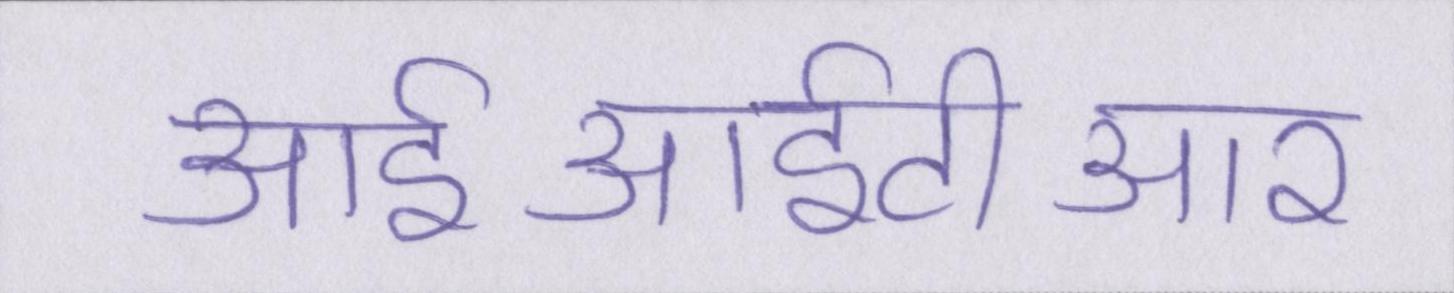 आईआईटीआर